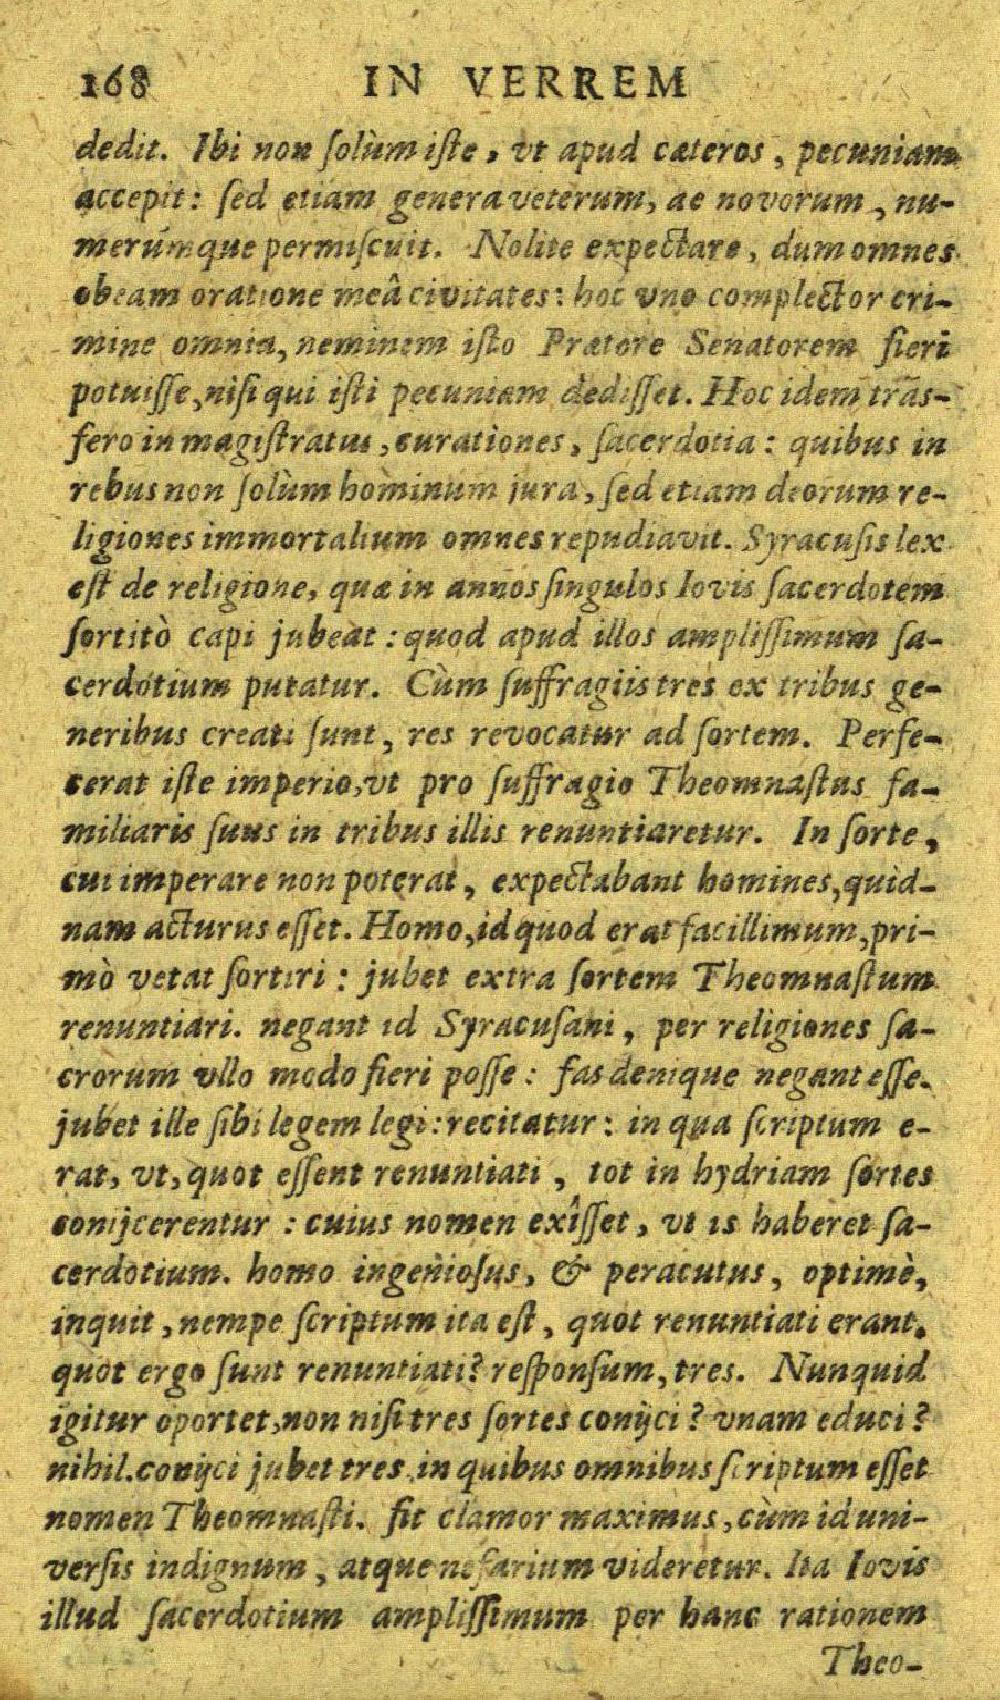 168 IN VERREM
dedit. Ibi non ſolùm iſte, vt apud cæteros, pecuniam
accepit: ſed etiam genera veterum, ac novorum, nu-
merúmque permiſcuit. Nolite expectare, dum omnes
obeam oratione meâ civitates: hoc vno complector cri-
mine omnia, neminem iſto Prætore Senatorem fieri
potuiſſe, niſi qui iſti pecuniam dediſſet. Hoc idem trãs-
fero in magiſtratus, curationes, ſacerdotia: quibus in
rebus non ſolùm hominum jura, ſed etiam deorum re-
ligiones immortalium omnes repudiavit. Syracuſis lex
eſt de religione, quæ in annos ſingulos Iovis ſacerdotem
ſortitò capi jubeat: quod apud illos ampliſſimum ſa-
cerdotium putatur. Cùm ſuffragiis tres ex tribus ge-
neribus creati ſunt, res revocatur ad ſortem. Perfe-
cerat iſte imperio, vt pro ſuffragio Theomnaſtus fa-
miliaris ſuus in tribus illis renuntiaretur. In ſorte,
cui imperare non poterat, expectabant homines, quid-
nam acturus eſſet. Homo, id quod erat facillimum, pri-
mò vetat ſortiri: jubet extra ſortem Theomnaſtum
renuntiari. negant id Syracuſani, per religiones ſa-
crorum vllo modo fieri poſſe: fas denique negant eſſe.
jubet ille ſibi legem legi: recitatur: in qua ſcriptum e-
rat, vt, quot eſſent renuntiati, tot in hydriam ſortes
conijcerentur: cuius nomen exîſſet, vt is haberet ſa-
cerdotium. homo ingenioſus, & peracutus, optimè,
inquit, nempe ſcriptum ita eſt, quot renuntiati erant.
quot ergo ſunt renuntiati? reſponſum, tres. Nunquid
igitur oportet, non niſi tres ſortes conijci? vnam educi?
nihil. conijci jubet tres, in quibus omnibus ſcriptum eſſet
nomen Theomnaſti. fit clamor maximus, cùm id uni-
verſis indignum, atque nefarium videretur. Ita Iovis
illud ſacerdotium ampliſſimum per hanc rationem
Theo-